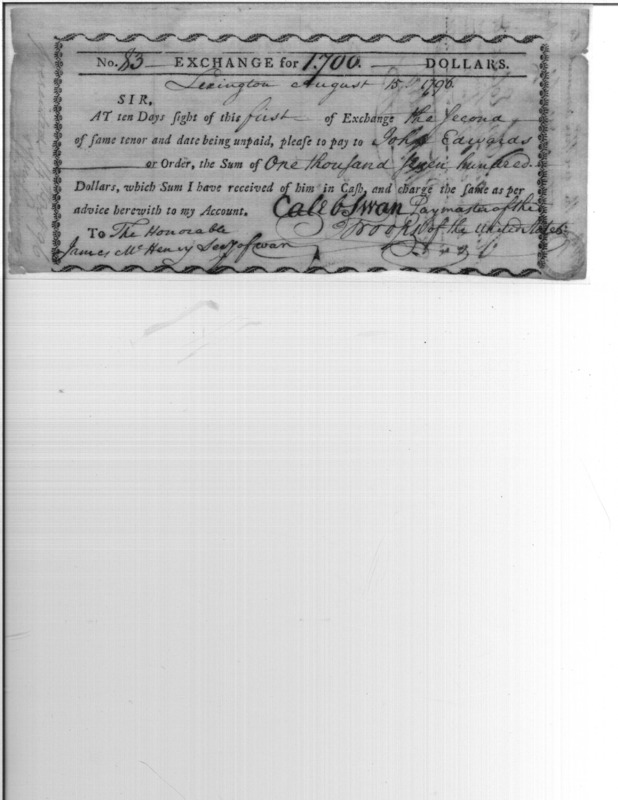 No. 83 EXCHANGE for 1.700. DOLLARS.
Lexington August 15th 1796.
SIR,
AT ten Days ſight of this first of Exchange the Second
of ſame tenor and date being unpaid, pleaſe to pay to John Edwards
or Order, the Sum of One thousand Seven hundred.
Dollars, which Sum I have received of him in Caſh, and charge the ſame as per
advice herewith to my Account. Caleb Swan Paymaster of the
To The Honorable Troops of the United States.
James McHenry Secy of war